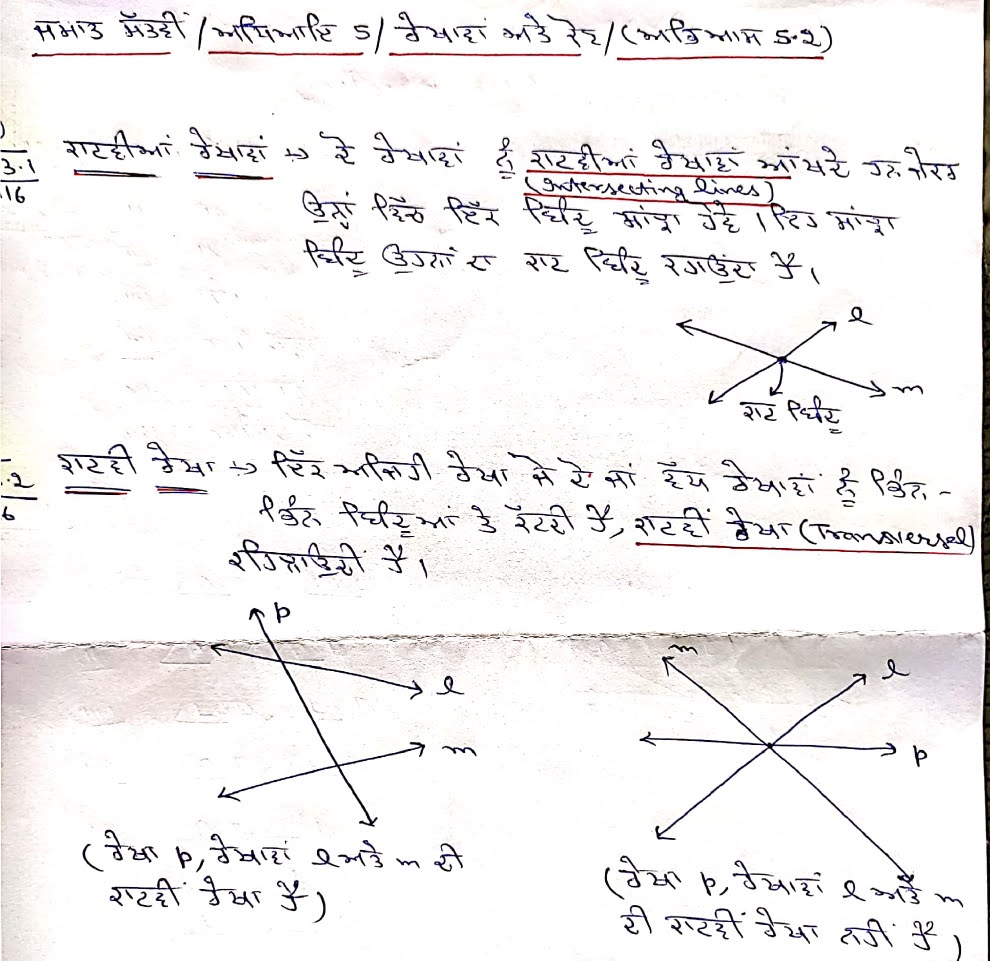 ਜਮਾਤ ਸੱਤਵੀਂ / ਅਧਿਆਇ 5 / ਰੇਖਾਵਾਂ ਅਤੇ ਕੋਣ / (ਅਭਿਆਸ 5.2)
3.1
16
ਕਾਟਵੀਆਂ ਰੇਖਾਵਾਂ → ਦੋ ਰੇਖਾਵਾਂ ਨੂੰ ਕਾਟਵੀਆਂ ਰੇਖਾਵਾਂ ਆਂਖਦੇ ਹਨ ਜੇਕਰ
(Intersecting lines)
ਉਨ੍ਹਾਂ ਵਿੱਚ ਇੱਕ ਬਿੰਦੂ ਸਾਂਝਾ ਹੋਵੇ । ਇਹ ਸਾਂਝਾ
ਬਿੰਦੂ ਉਹਨਾਂ ਦਾ ਕਾਟ ਬਿੰਦੂ ਕਹਾਉਂਦਾ ਹੈ ।
l
m
ਕਾਟ ਬਿੰਦੂ
.2
6
ਕਾਟਵੀ ਰੇਖਾ → ਇੱਕ ਅਜਿਹੀ ਰੇਖਾ ਜੋ ਦੋ ਜਾਂ ਵੱਧ ਰੇਖਾਵਾਂ ਨੂੰ ਭਿੰਨ-
ਭਿੰਨ ਬਿੰਦੂਆਂ ਤੇ ਕੱਟਦੀ ਹੈ, ਕਾਟਵੀਂ ਰੇਖਾ (Transversel)
ਕਹਿਲਾਉਂਦੀ ਹੈ ।
p
l
m
m
l
p
(ਰੇਖਾ p, ਰੇਖਾਵਾਂ l ਅਤੇ m ਦੀ
ਕਾਟਵੀਂ ਰੇਖਾ ਹੈ)
(ਰੇਖਾ p, ਰੇਖਾਵਾਂ l ਅਤੇ m
ਦੀ ਕਾਟਵੀਂ ਰੇਖਾ ਨਹੀਂ ਹੈ)